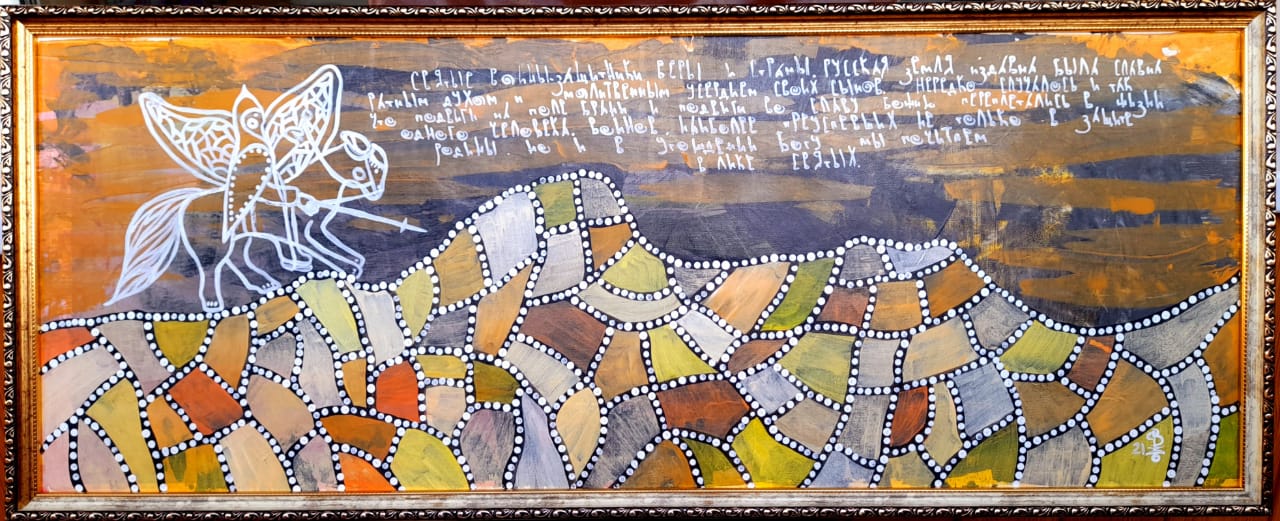 СВЯТЫЕ ВОИНЫ-ЗАЩИТНИКИ ВЕРЫ И СТРАНЫ. РУССКАЯ ЗЕМЛЯ ИЗДАВНА БЫЛА СЛАВНА
РАТНЫМ ДУХОМ И МОЛИТВЕННЫМ УСЕРДИЕМ СВОИХ СЫНОВ. НЕРЕДКО СЛУЧАЛОСЬ И ТАК
ЧТО ПОДВИГИ НА ПОЛЕ БРАНИ И ПОДВИГИ ВО СЛАВУ БОЖИЮ ПЕРЕПЛЕТАЛИСЬ В ЖИЗНИ
ОДНОГО ЧЕЛОВЕКА. ВОИНОВ, НАИБОЛЕЕ НЕ ТОЛЬКО В ЗАЩИТЕ
РОДИНЫ. НО И В УГОЖДЕНИИ БОГУ МЫ ПОЧИТАЕМ
В ЛИКЕ СВЯТЫХ.
21